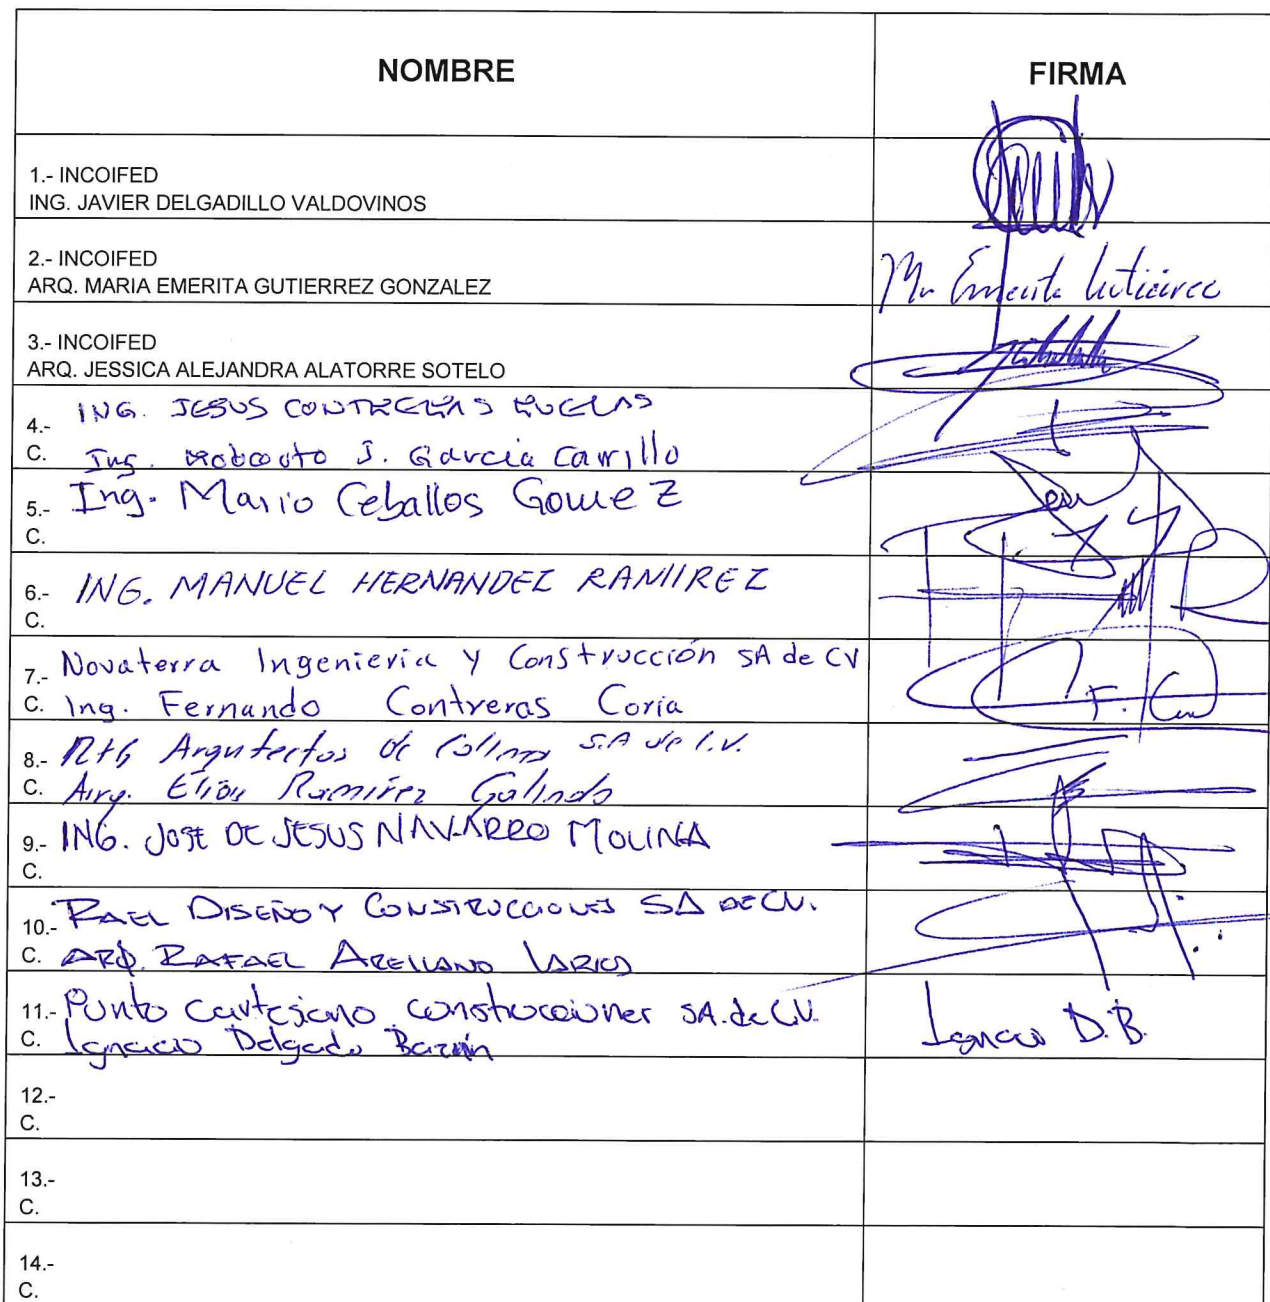 NOMBRE
FIRMA
1.- INCOIFED
ING. JAVIER DELGADILLO VALDOVINOS
2.- INCOIFED
ARQ. MARIA EMERITA GUTIERREZ GONZALEZ
Ma Emerita Gutiérrez
3.- INCOIFED
ARQ. JESSICA ALEJANDRA ALATORRE SOTELO
4.- ING. JESUS CONTRERAS RUELAS
C. Ing. Roberto J. García Carrillo
5.- Ing. Mario Ceballos GomeZ
C.
6.- ING. MANUEL HERNANDEZ RAMIREZ
C.
7.- Novaterra Ingenieria y Construcción SA de CV
C. Ing. Fernando Contreras Coria
F. Con
8.- Arquitectos de Colima S.A de C.V.
C. Arq. Ramirez Galindo
9.- ING. JOSE DE JESUS NAVARRO MOLINA
C.
10.- RAEL DISEÑO Y CONSTRUCCIONES SA DE CV.
C. ARQ. RAFAEL ARELLANO LARIOS
11.- Punto Cartesiano construcciones SA. de C.V.
C. Ignacio Delgado Bazán
Ignacio D.B.
12.-
C.
13.-
C.
14.-
C.